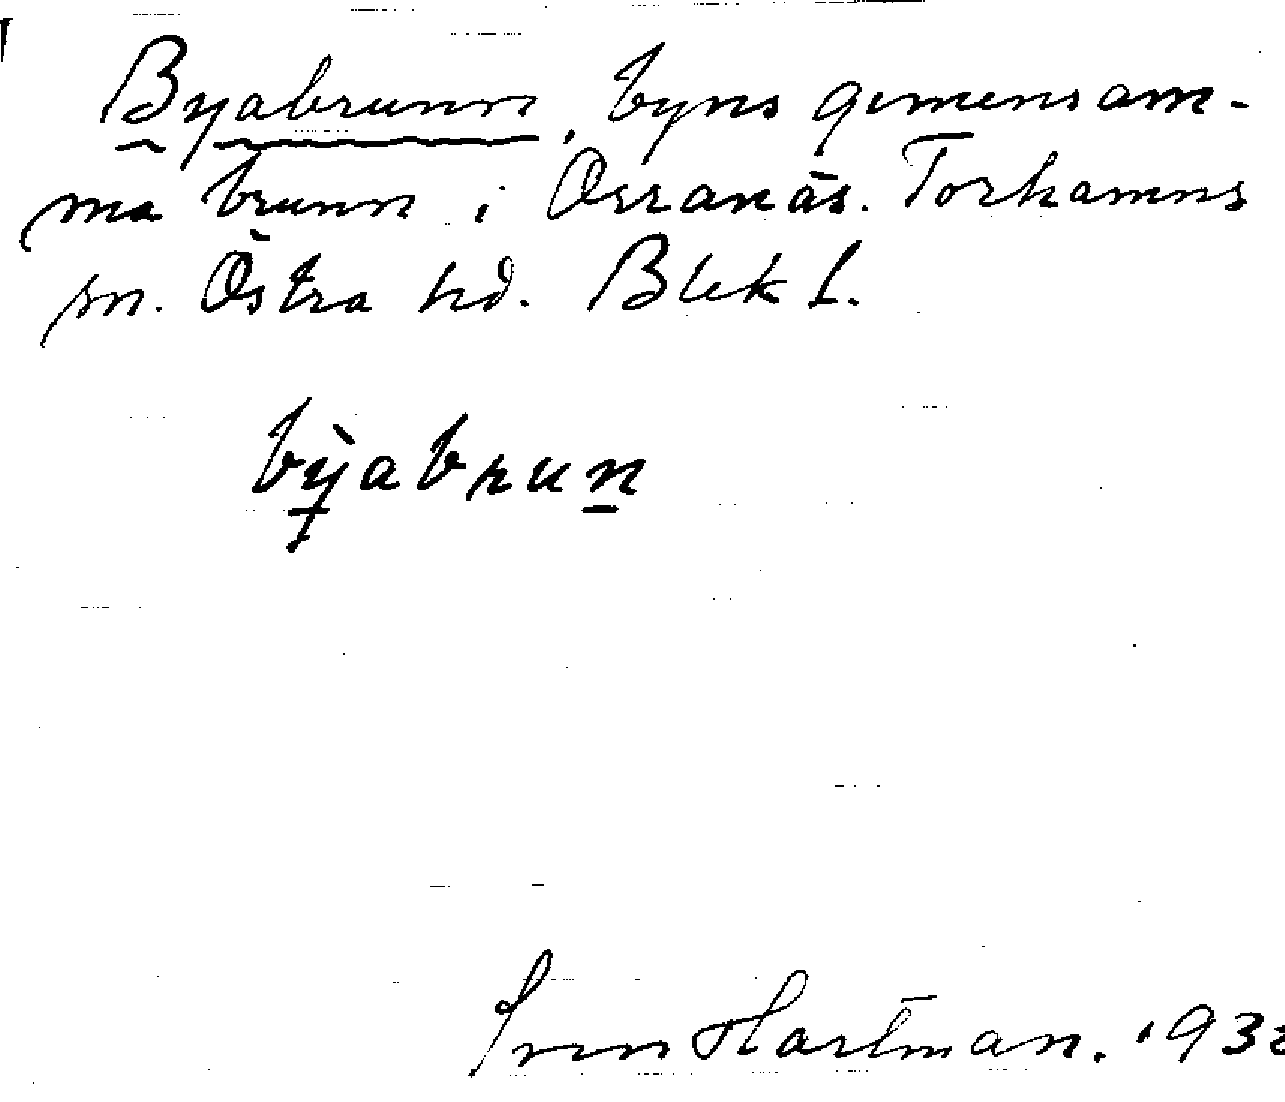 Byabrunn, byns gemensam-
ma brunn i Ossanäs. Torhamns
sn. Östra hd. Blek l.
bỳabrun̲
Sven Hartman. 193